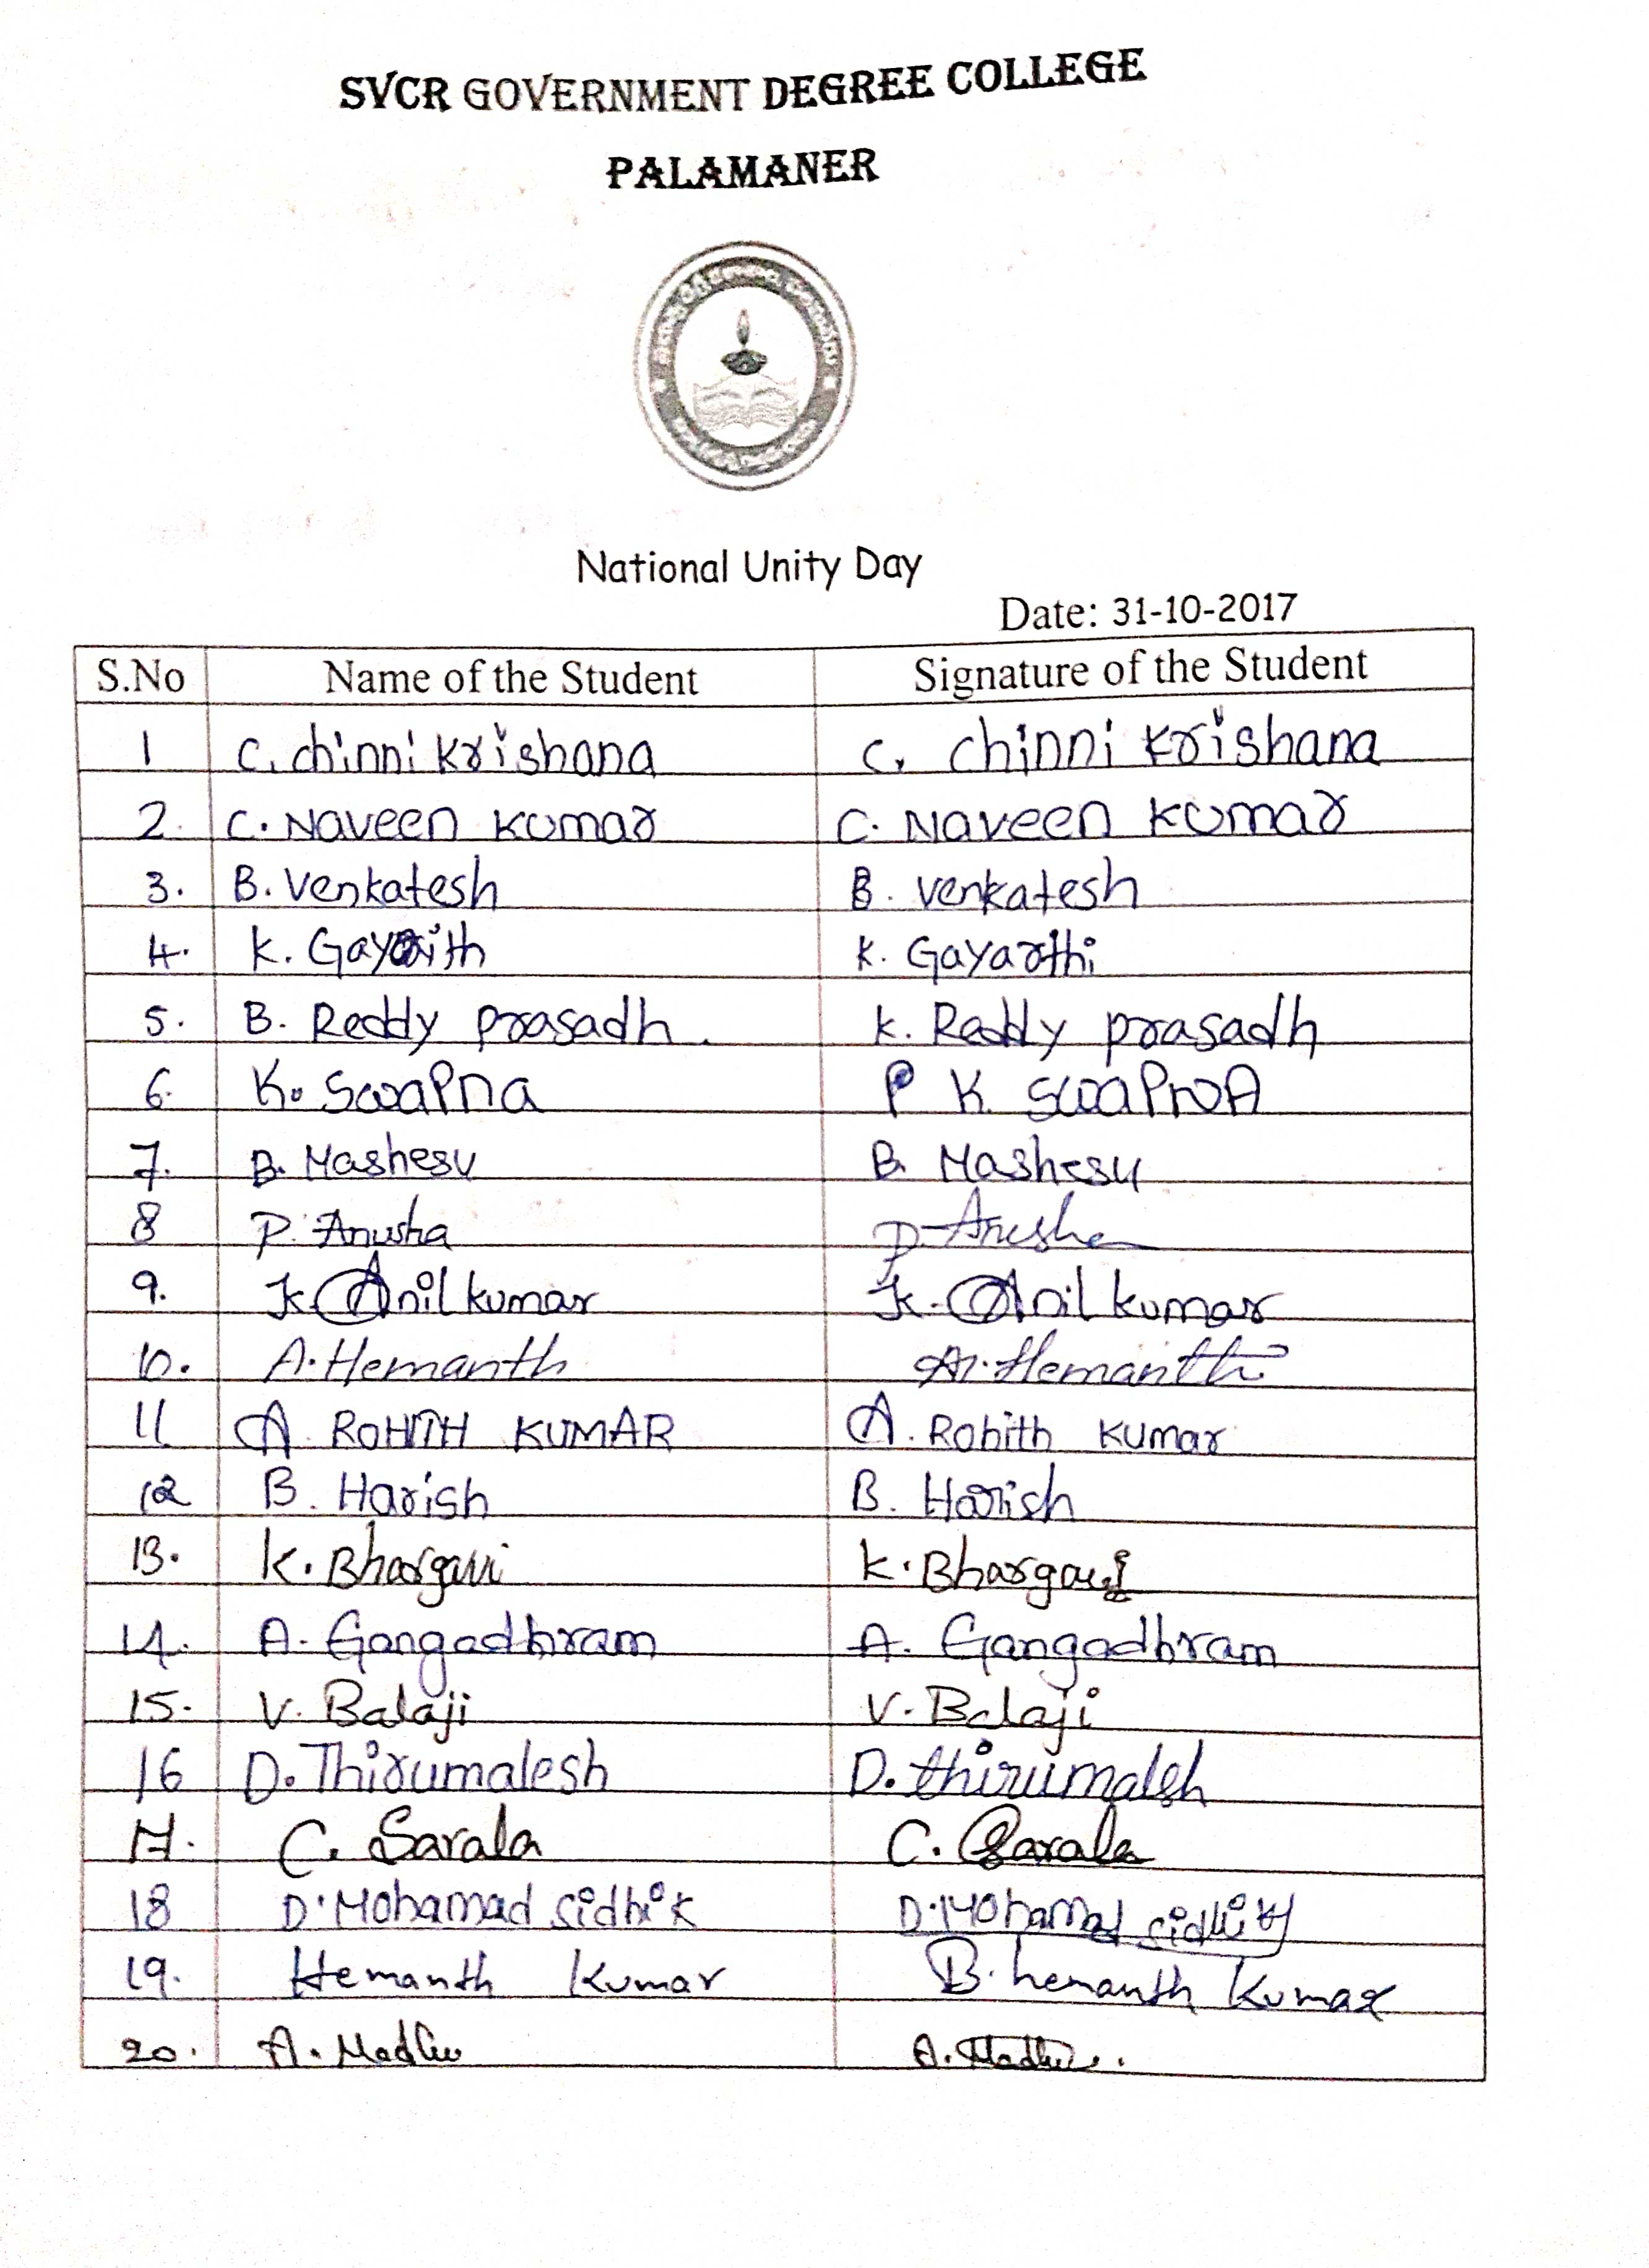 SVCR GOVERNMENT DEGREE COLLEGE
PALAMANER
National Unity Day
Date: 31-10-2017
S.No Name of the Student Signature of the Student
1 C. chinni Krishana C. chinni Krishana
2. C. Naveen Kumar C. Naveen Kumar
3. B. Venkatesh B. Venkatesh
4. K. Gayarith K. Gayarthi
5. B. Reddy prasadh. K. Reddy prasadh
6. K. Swapna P K Swapna
7. B. Mashesu B. Mashesu
8 P. Anusha P. Anusha
9. K. Anil kumar K. Anil kumar
10. A. Hemanth A. Hemanth
11 A. ROHITH KUMAR A. Rohith Kumar
12 B. Harish B. Harish
13. K. Bhargavi K. Bhargavi
14. A. Gangadhram A. Gangadhram
15. V. Balaji V. Balaji
16 D. Thirumalesh D. thirumalsh
17. C. Sarala C. Sarala
18 D. Mohamad sidhik D. Mohamad sidhik
19. Hemanth Kumar B. hemanth Kumar
20. A. Madhu A. Madhu